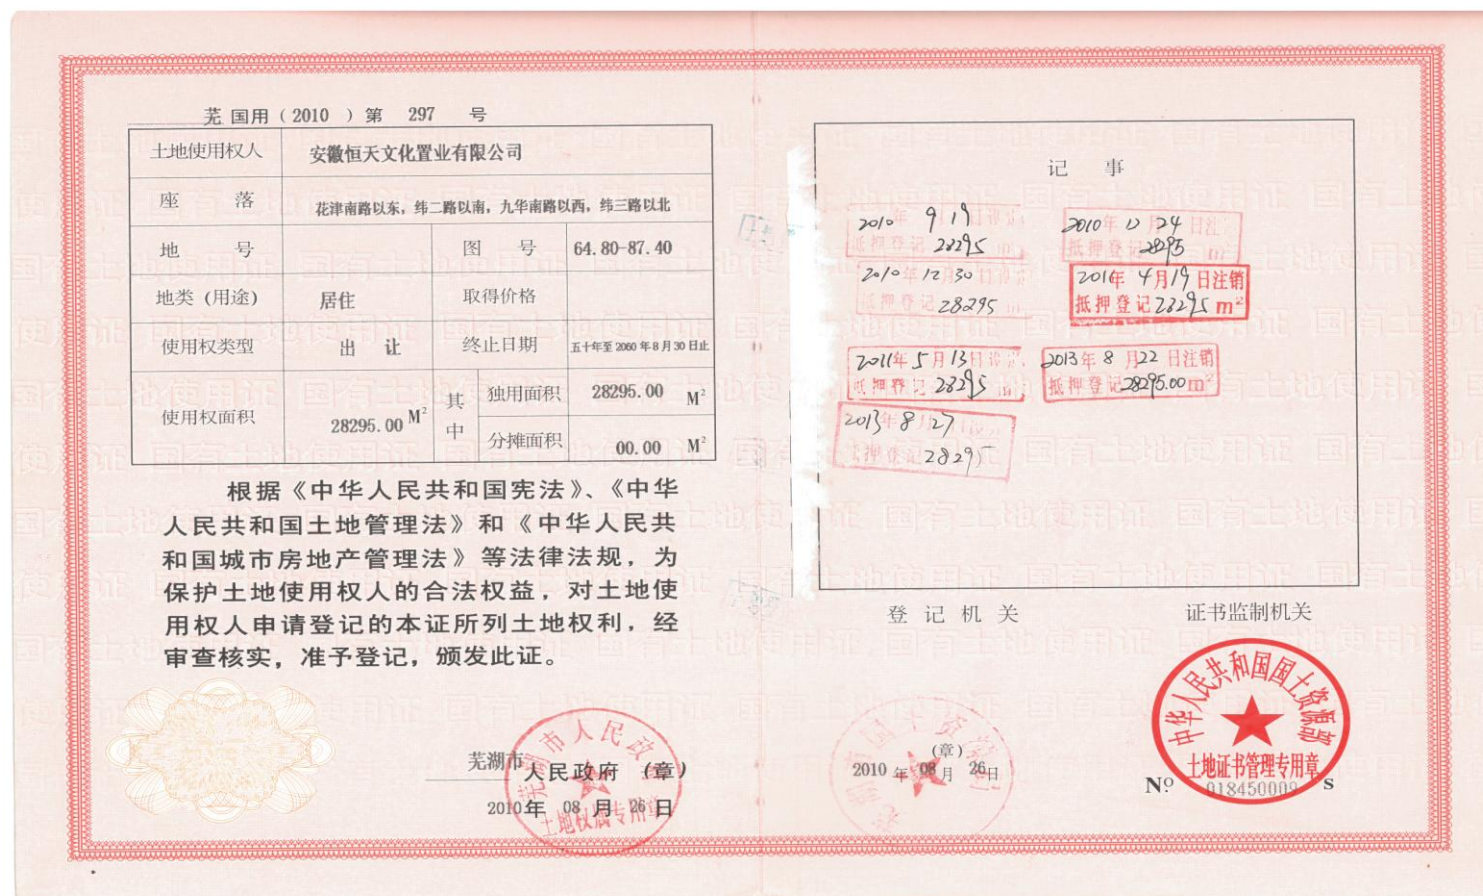 芜 国用（2010 ）第 297 号
土地使用权人 安徽恒天文化置业有限公司
座 落 花津南路以东，纬二路以南，九华南路以西，纬三路以北
地 号 图 号 64.80-87.40
地类（用途） 居住 取得价格
使用权类型 出 让 终止日期 五十年至 2060 年 8 月 30 日止
使用权面积 28295.00 M² 其中 独用面积 28295.00 M²
分摊面积 00.00 M²
根据《中华人民共和国宪法》、《中华
人民共和国土地管理法》和《中华人民共
和国城市房地产管理法》等法律法规，为
保护土地使用权人的合法权益，对土地使
用权人申请登记的本证所列土地权利，经
审查核实，准予登记，颁发此证。
芜湖市人民政府 （章）
2010年 08 月 26 日
芜湖市人民政府
土地权属专用章
记 事
2010年 9 19
抵押登记 28295 m²
2010年 12月24日注
抵押登记 28295 m
2010年12月30日
抵押登记 28295 m
201年 4月19日注销
抵押登记28295 m²
2011年5月13日
抵押登记 28295
2013年 8 月22 日注销
抵押登记28295.00m²
2013年8月27
押登记 28295
登 记 机 关
证书监制机关
（章）
2010 年 08 月 26日
国土资源局
中华人民共和国国土资源部
土地证书管理专用章
Nº 018450009 S
国有土地使用证